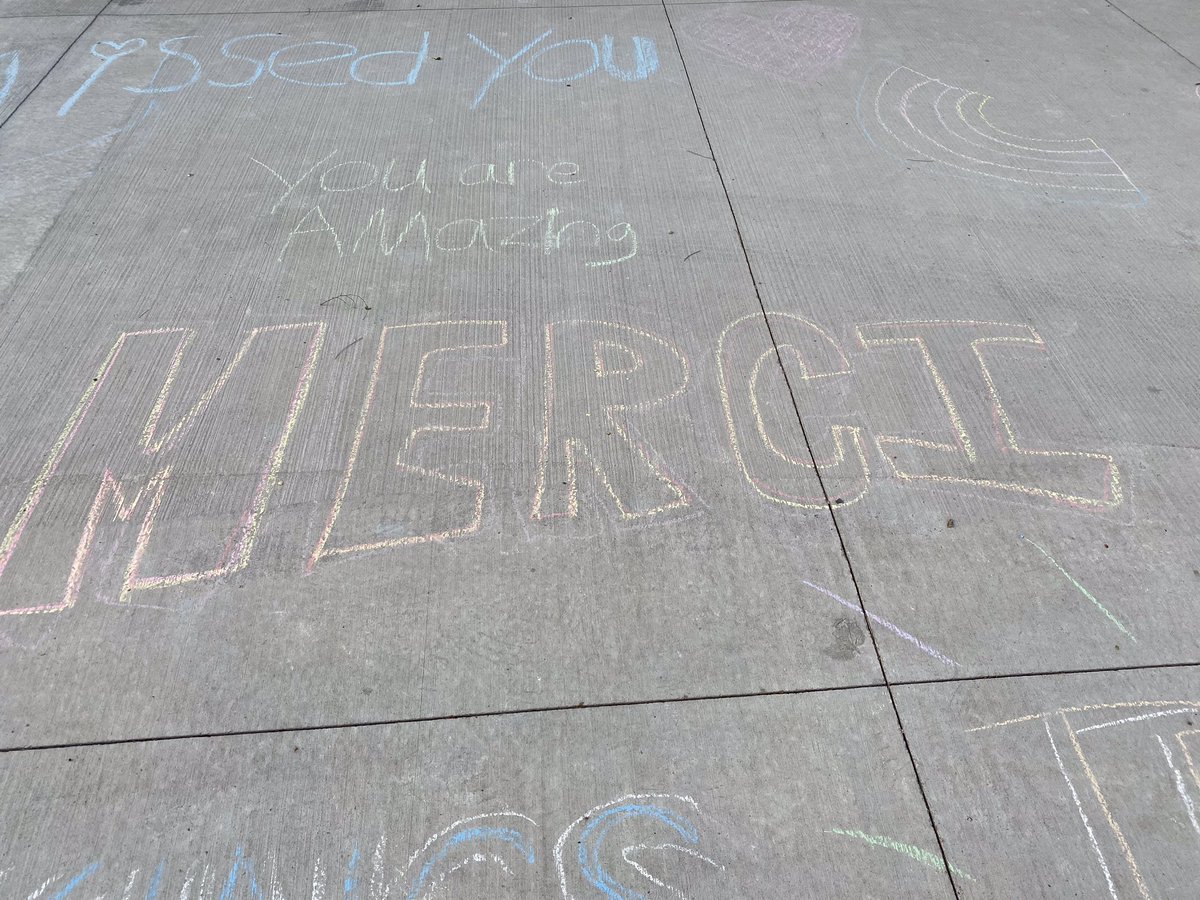 issed you
You are
AMazing
MERCI